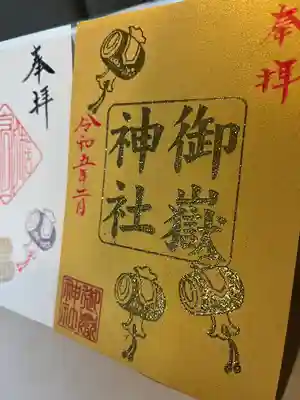 奉拝
御嶽
神社
令和五年二月
御嶽
神社
奉拝